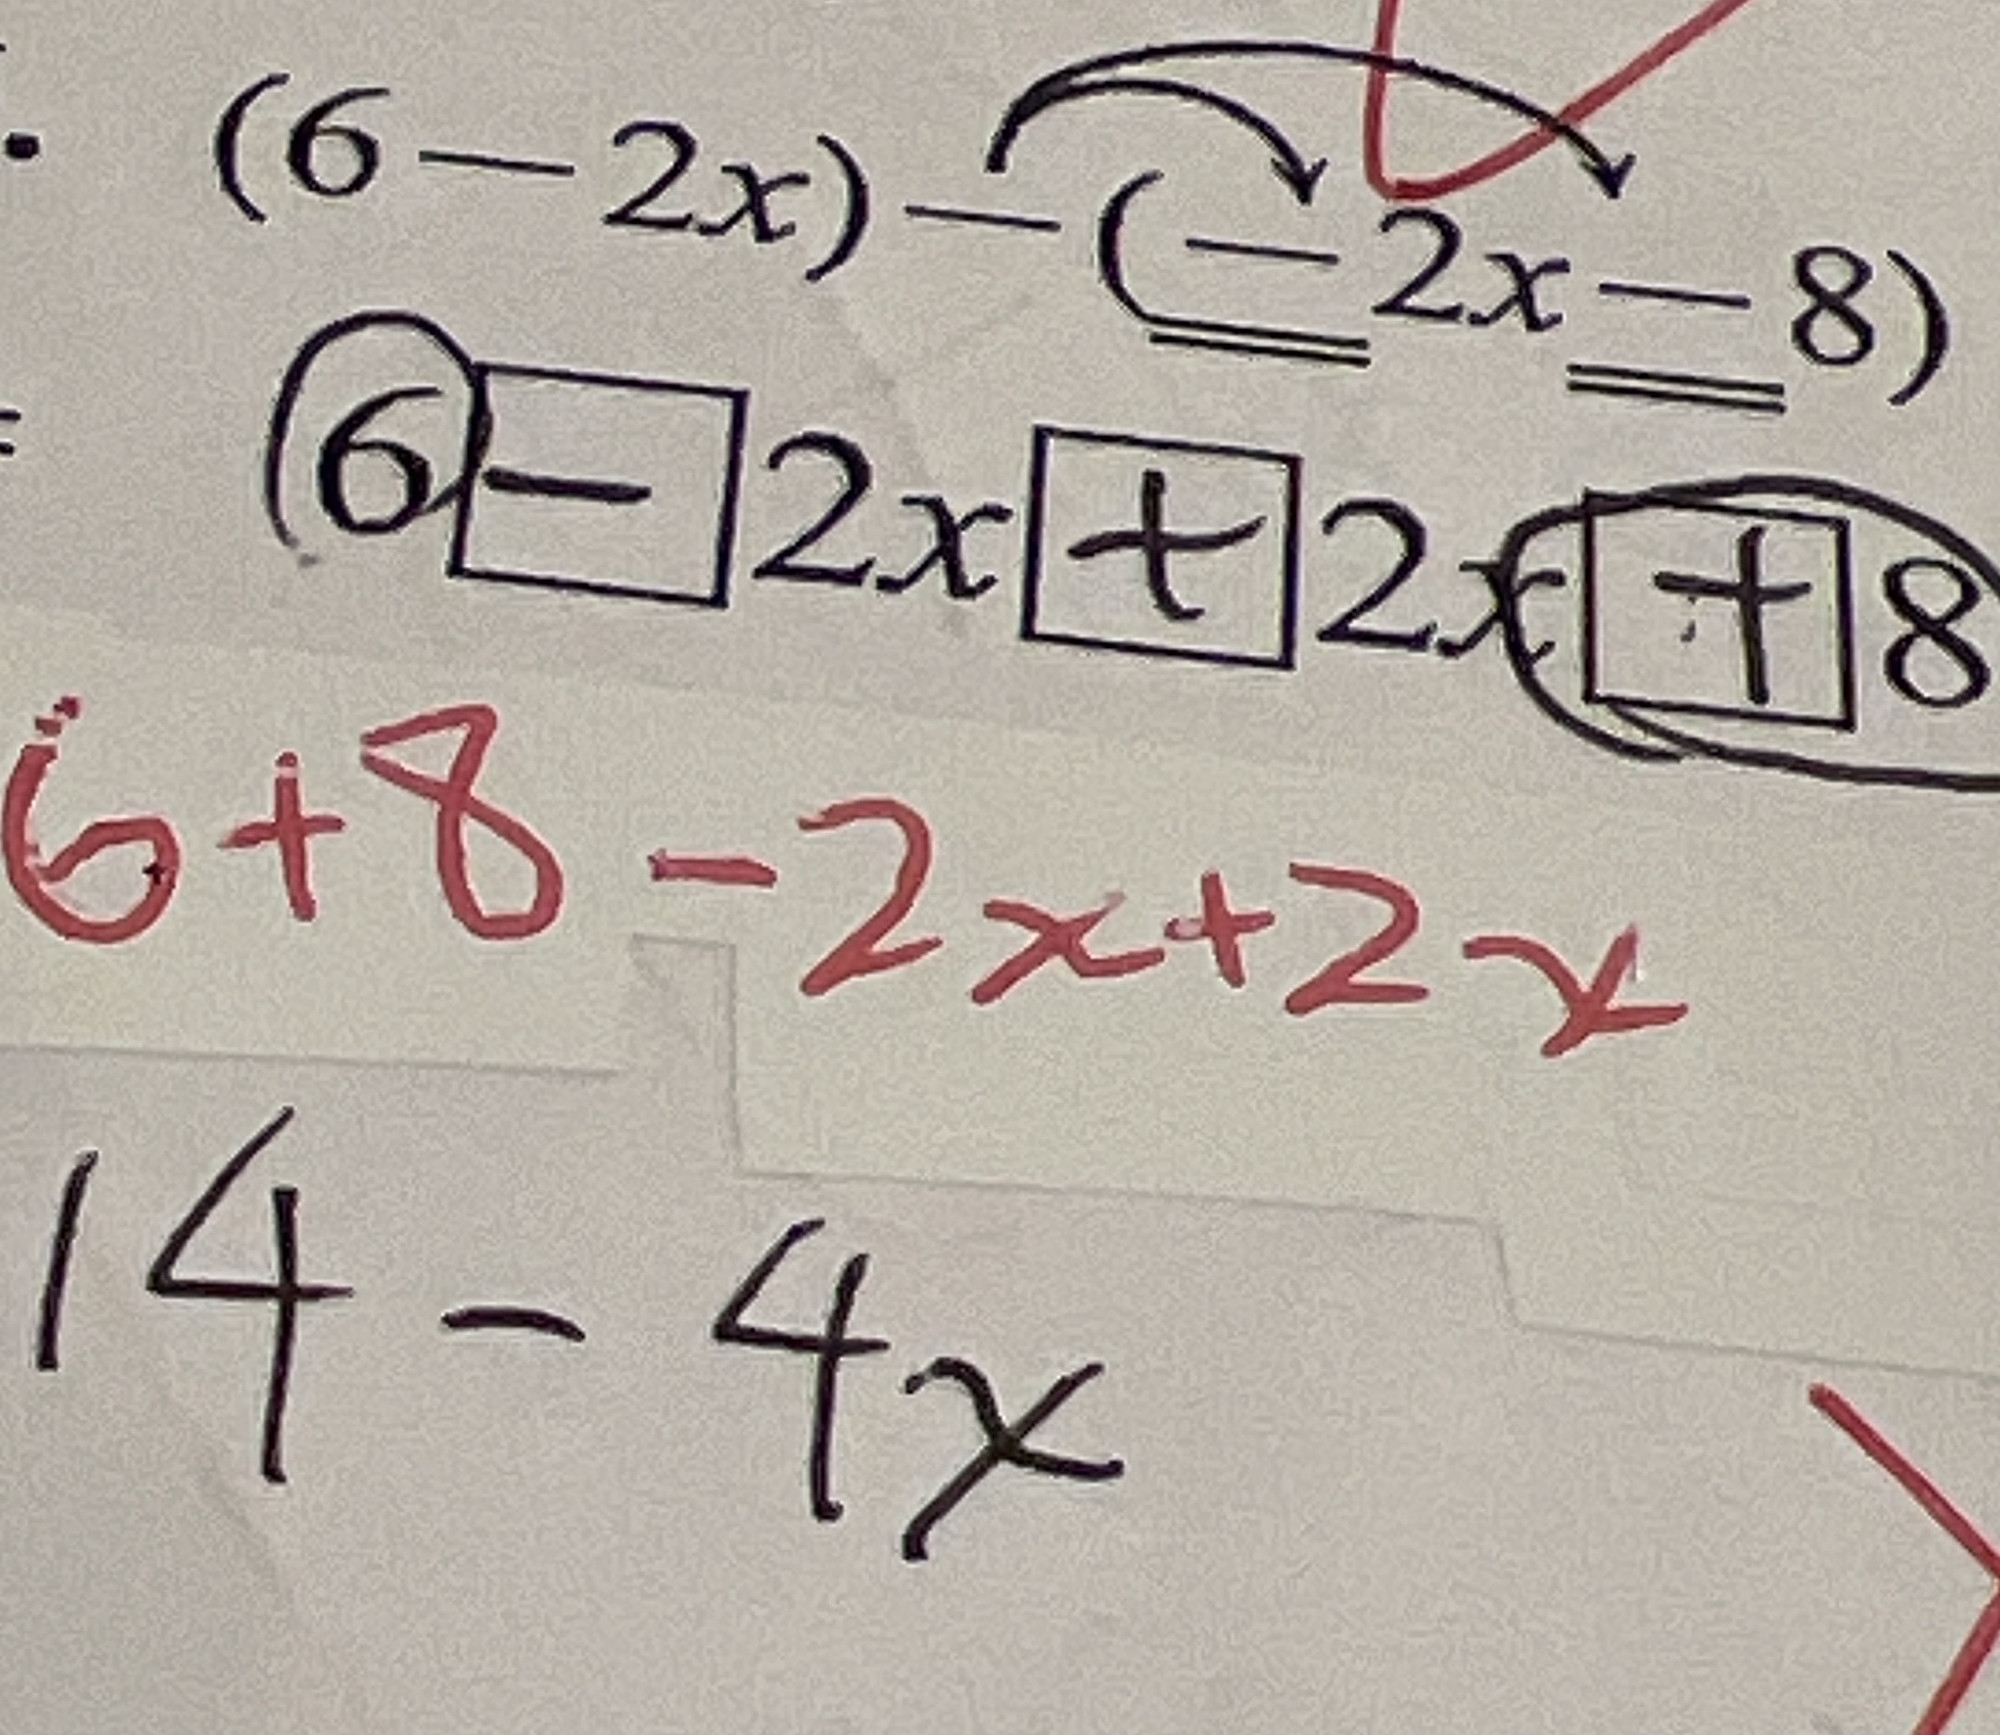 . (6 − 2x) − (− 2x − 8)
= 6 − 2x + 2x + 8
6+8 - 2x+2x
14 - 4x